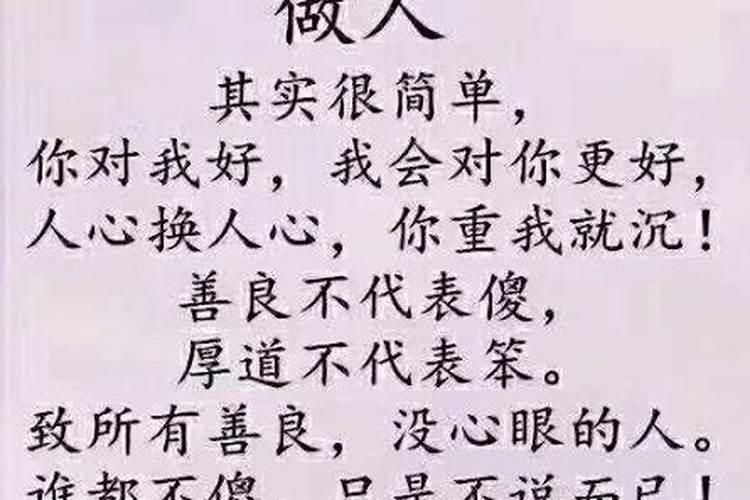 做人
其实很简单，
你对我好，我会对你更好，
人心换人心，你重我就沉！
善良不代表傻，
厚道不代表笨。
致所有善良，没心眼的人。
谁都不傻，只是不说而已！